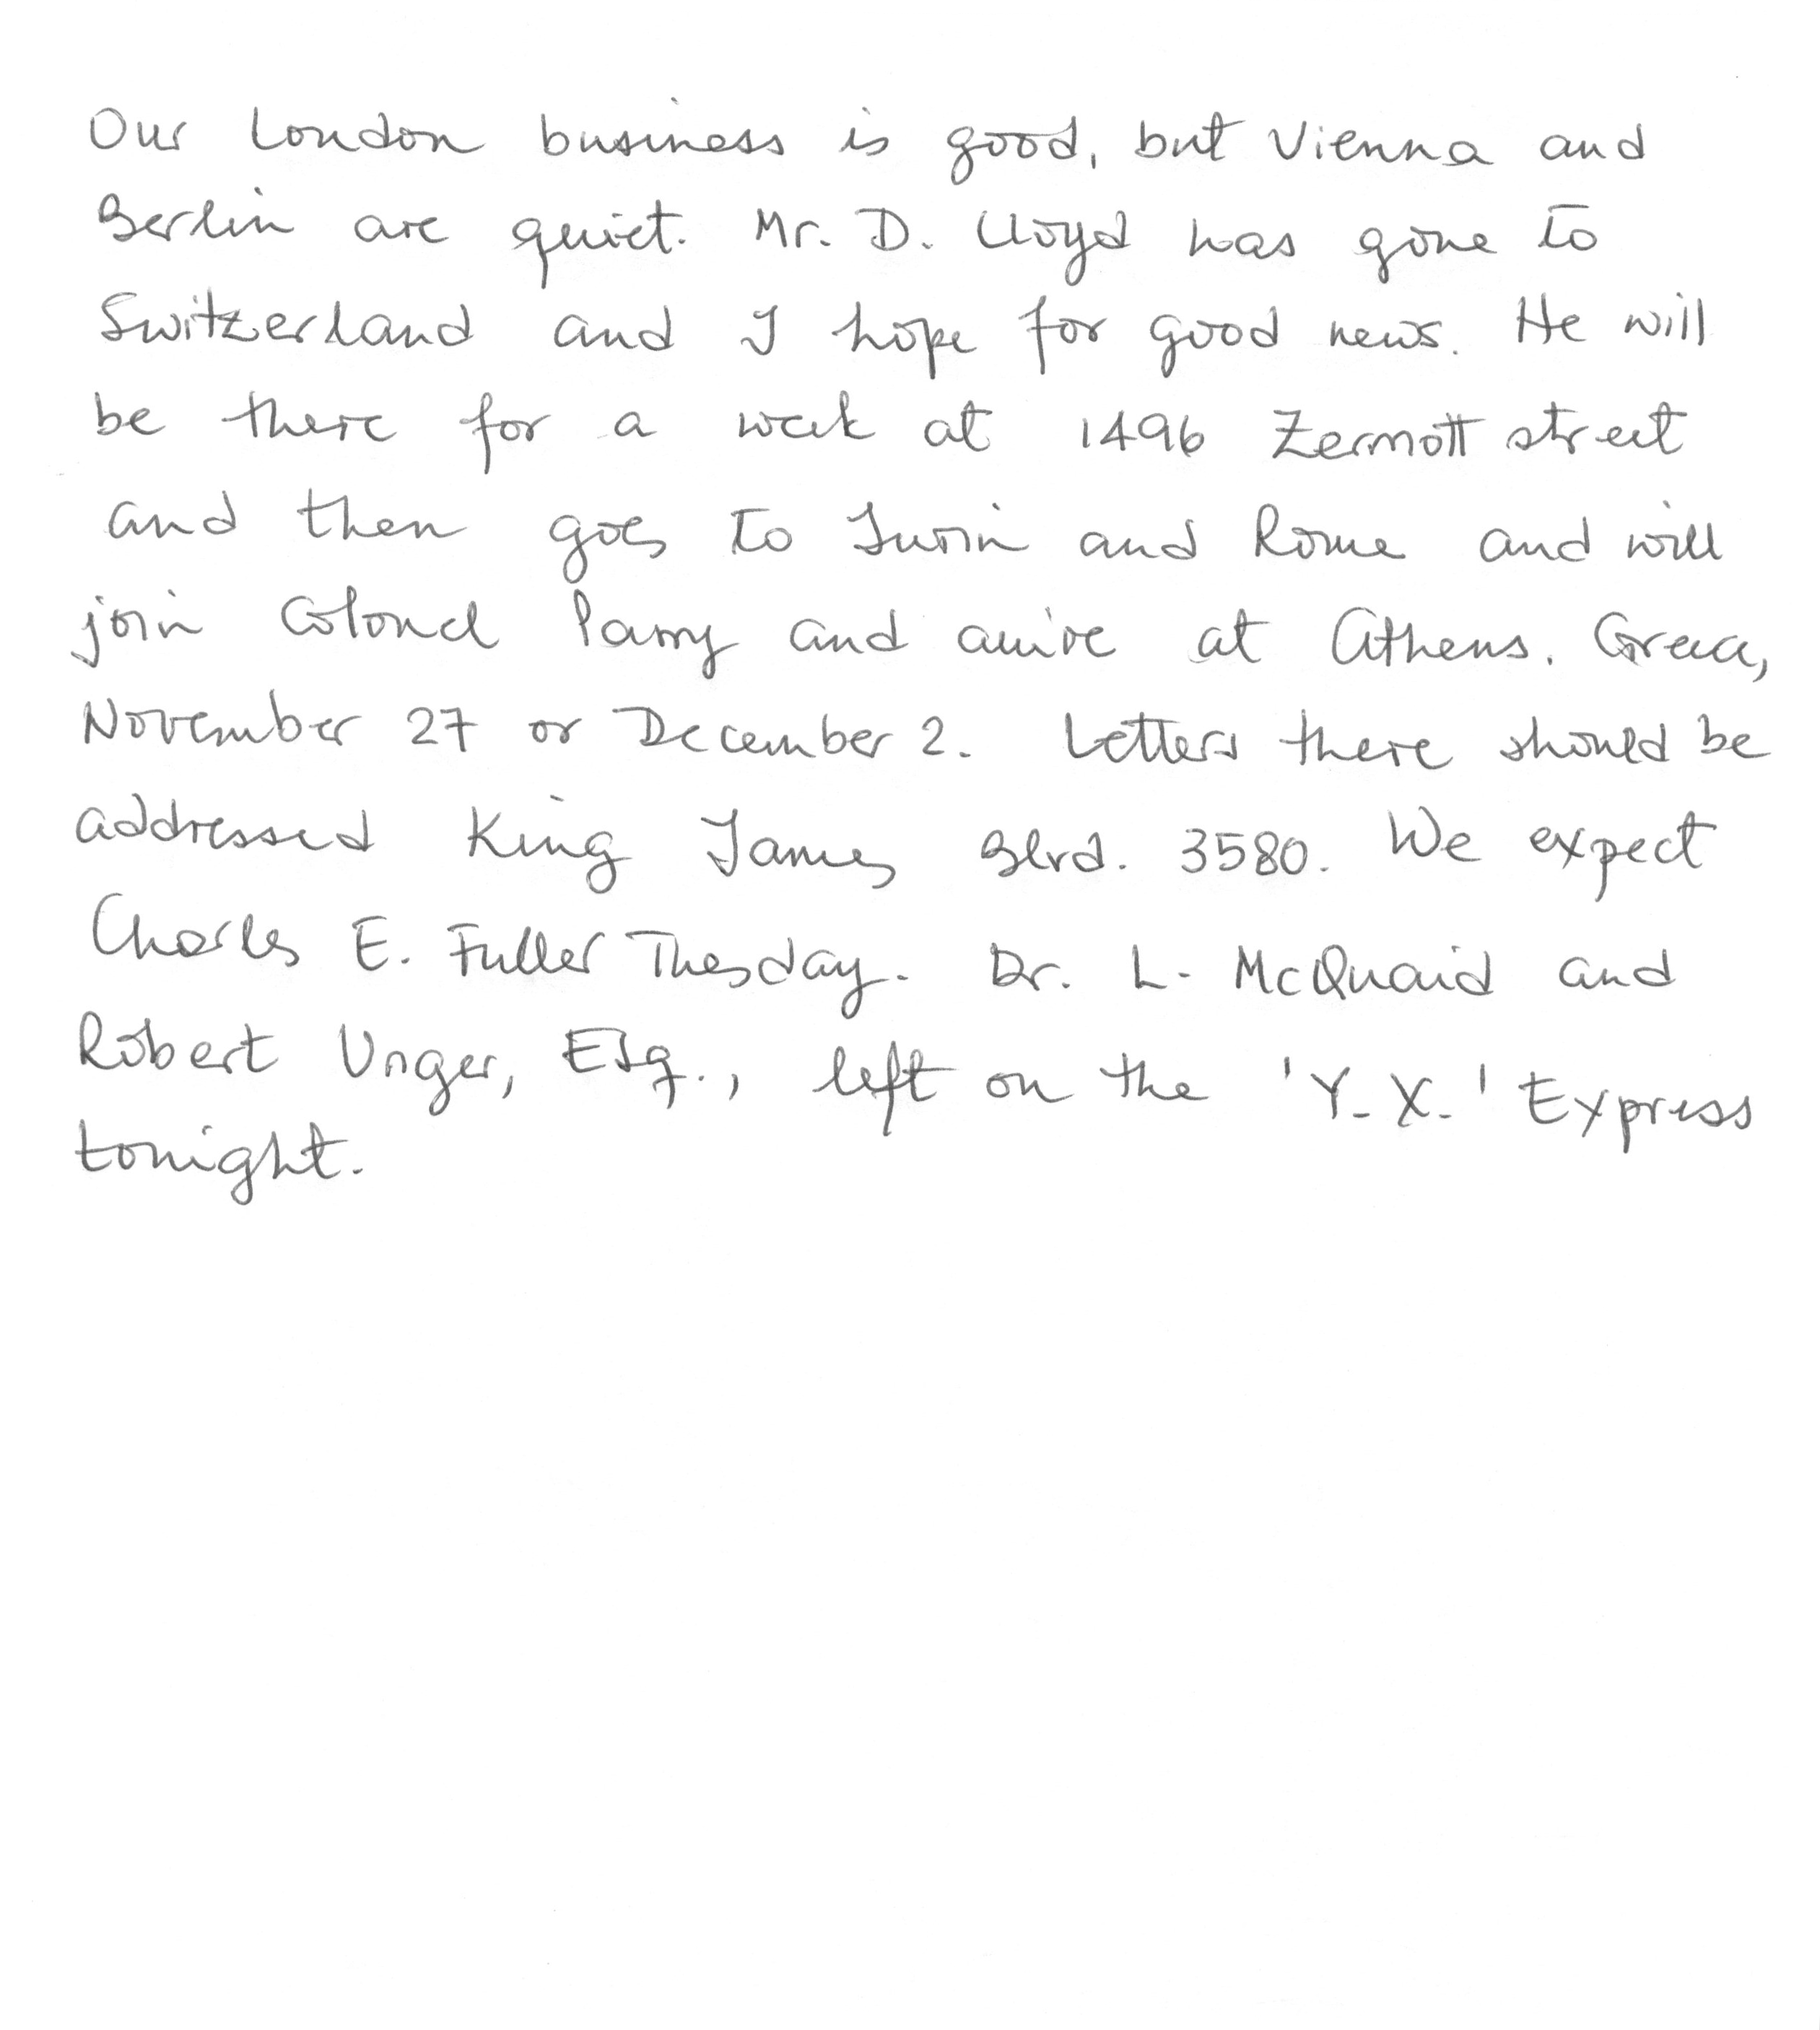 Our London business is good, but Vienna and
Berlin are quiet. Mr. D. Lloyd has gone to
Switzerland and I hope for good news. He will
be there for a week at 1496 Zermott street
and then goes to Turin and Rome and will
join Colonel Parry and arrive at Athens. Greece,
November 27 or December 2. Letters there should be
addressed King James Blvd. 3580. We expect
Charles E. Fuller Thesday. Dr. L. McQuaid and
Robert Unger, Esq., left on the 'Y.X.' Express
tonight.